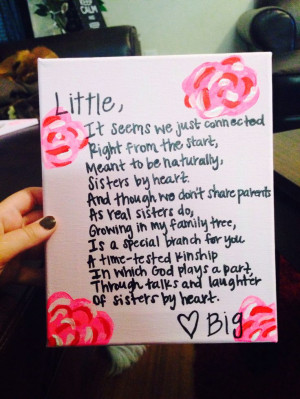 KEEP
CALM
Little,
It seems we just connected
Right from the start,
Meant to be naturally,
Sisters by heart.
And though we don't share parents
As real sisters do,
Growing in my family tree,
Is a special branch for you
A time-tested kinship
In which God plays a part,
Through talks and laughter
Of sisters by heart.
♡ Big